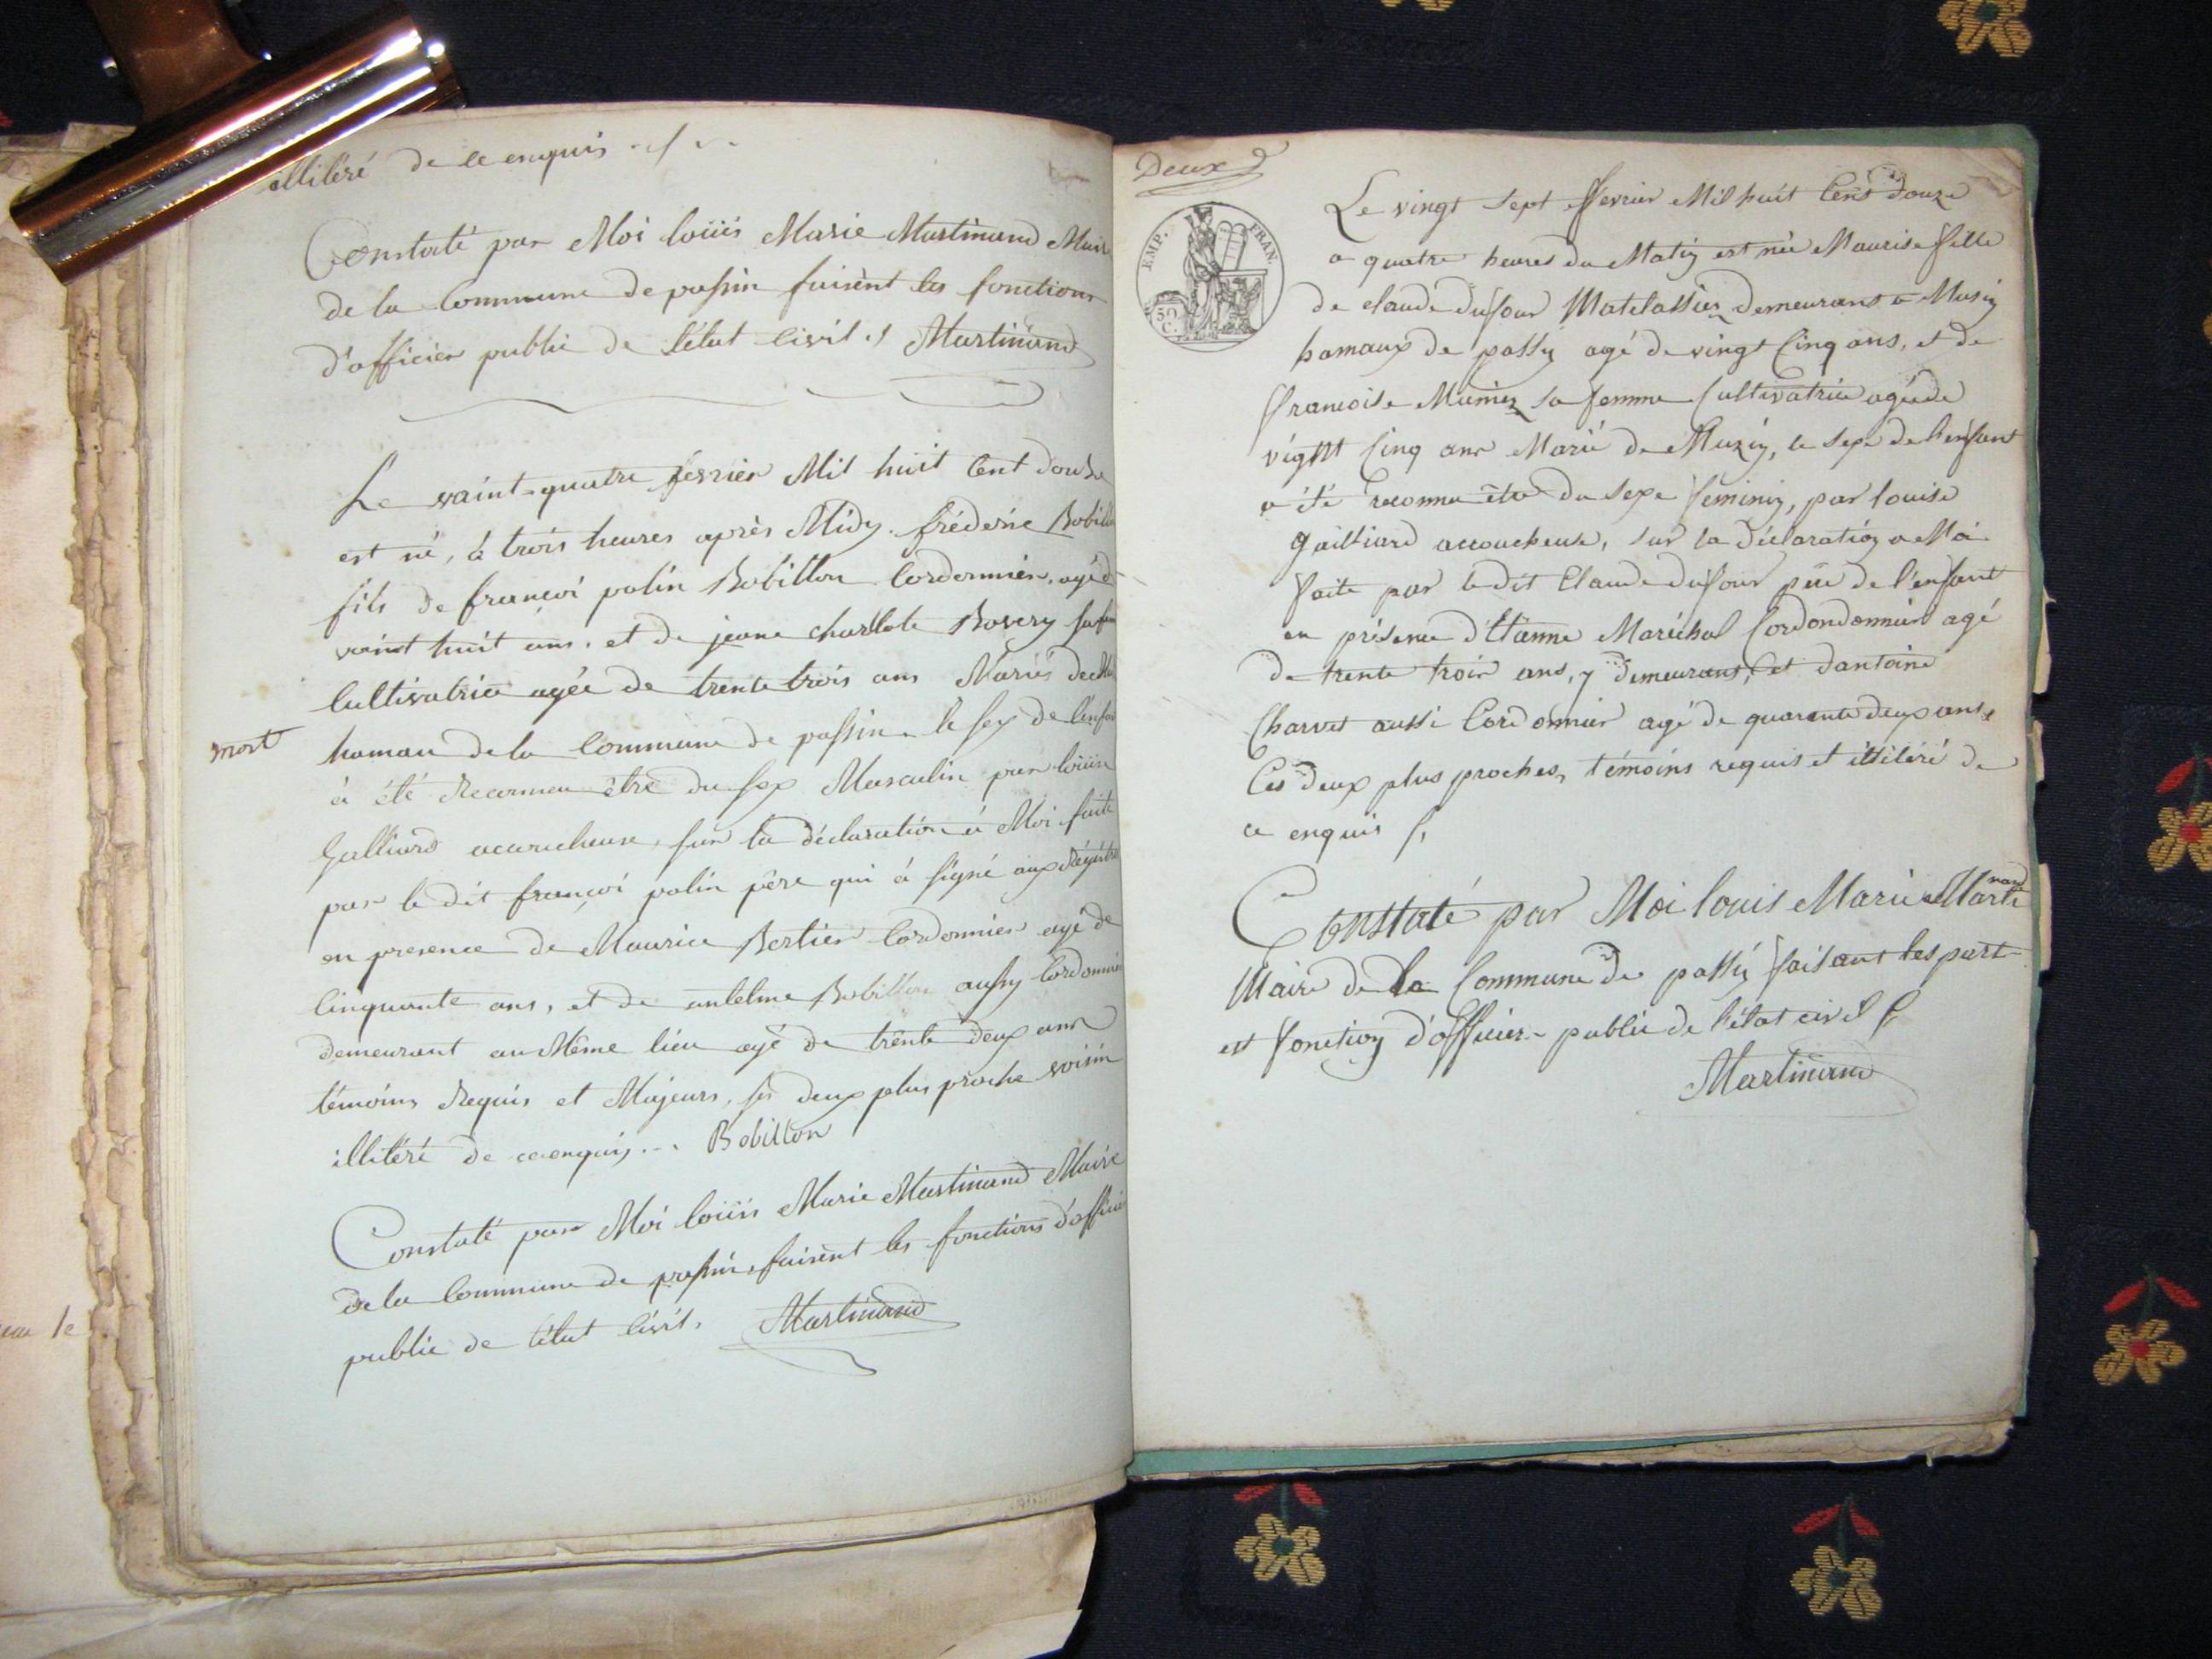 illiléré de ce enquis
Constaté par Moi loüis Marie Martinand Maire
de la Commune de passin faisent les fonctions
d'officier public de l'état civil Martinand
Le vaint-quatre fevrier Mil huit Cent douse
est né, à trois heures après Midy. fréderic Bobillon
fils de françoi polin Bobillon Cordonnier, agé de
vaint huit ans. et de jeane charllote Bovery sa fem
Cultivatrice agée de trente trois ans Mariés
mort
hamau de la Commune de passin. le sex de l'enfan
à été Reconnu être du sex Masculin par loüise
Galliard acaucheuse, sur la déclaration à Moi faite
par le dit françoi polin père qui à signé aux Régistre
en presence de Maurice Bertier Cordonnier agé de
Cinquante ans, et de antelme Bobillon aussy Cordonnier
demeurant au Même lieu agé de trente deux ans
témoins Requis et Majeurs, ses deux plus proche voisin
illitéré de ce enquis... Bobillon
Constaté par Moi loüis Marie Martinand Maire
de la Commune de passin, faisent les fonctions d'officier
public de l'état Civil. Martinand
Deux
EMP. FRAN.
50 C.
Le vingt sept ffevrier Mil huit Cens douze
a quatre heures du Matin est née Maurise fille
de claude dufour Matelassier Demeurant a Musin
hamaux de passy agé de vingt Cinq ans, et de
francoise sa femme Cultivatrice agée de
vigtt Cinq ans Marié de Muzin, le sexe de l'enfant
a été reconnu être du sexe féminin, par louise
gailliard accoucheuse, sur la déclaration a Moi
faite par le dit Claude dufour père de l'enfant
en présence d'Etienne Maréchal Cordondonnier agé
de trente trois ans, y demeurant, et dantoine
Charvet aussi Cordonnier agé de quarante deux ans
Ces deux plus proches, témoins requis et illiléré de
ce enquis
Constaté par Moi louis Marie Martinand
Maire de la Commune de passy faisant les part
est fonction d'officier public de l'état civil
Martinand